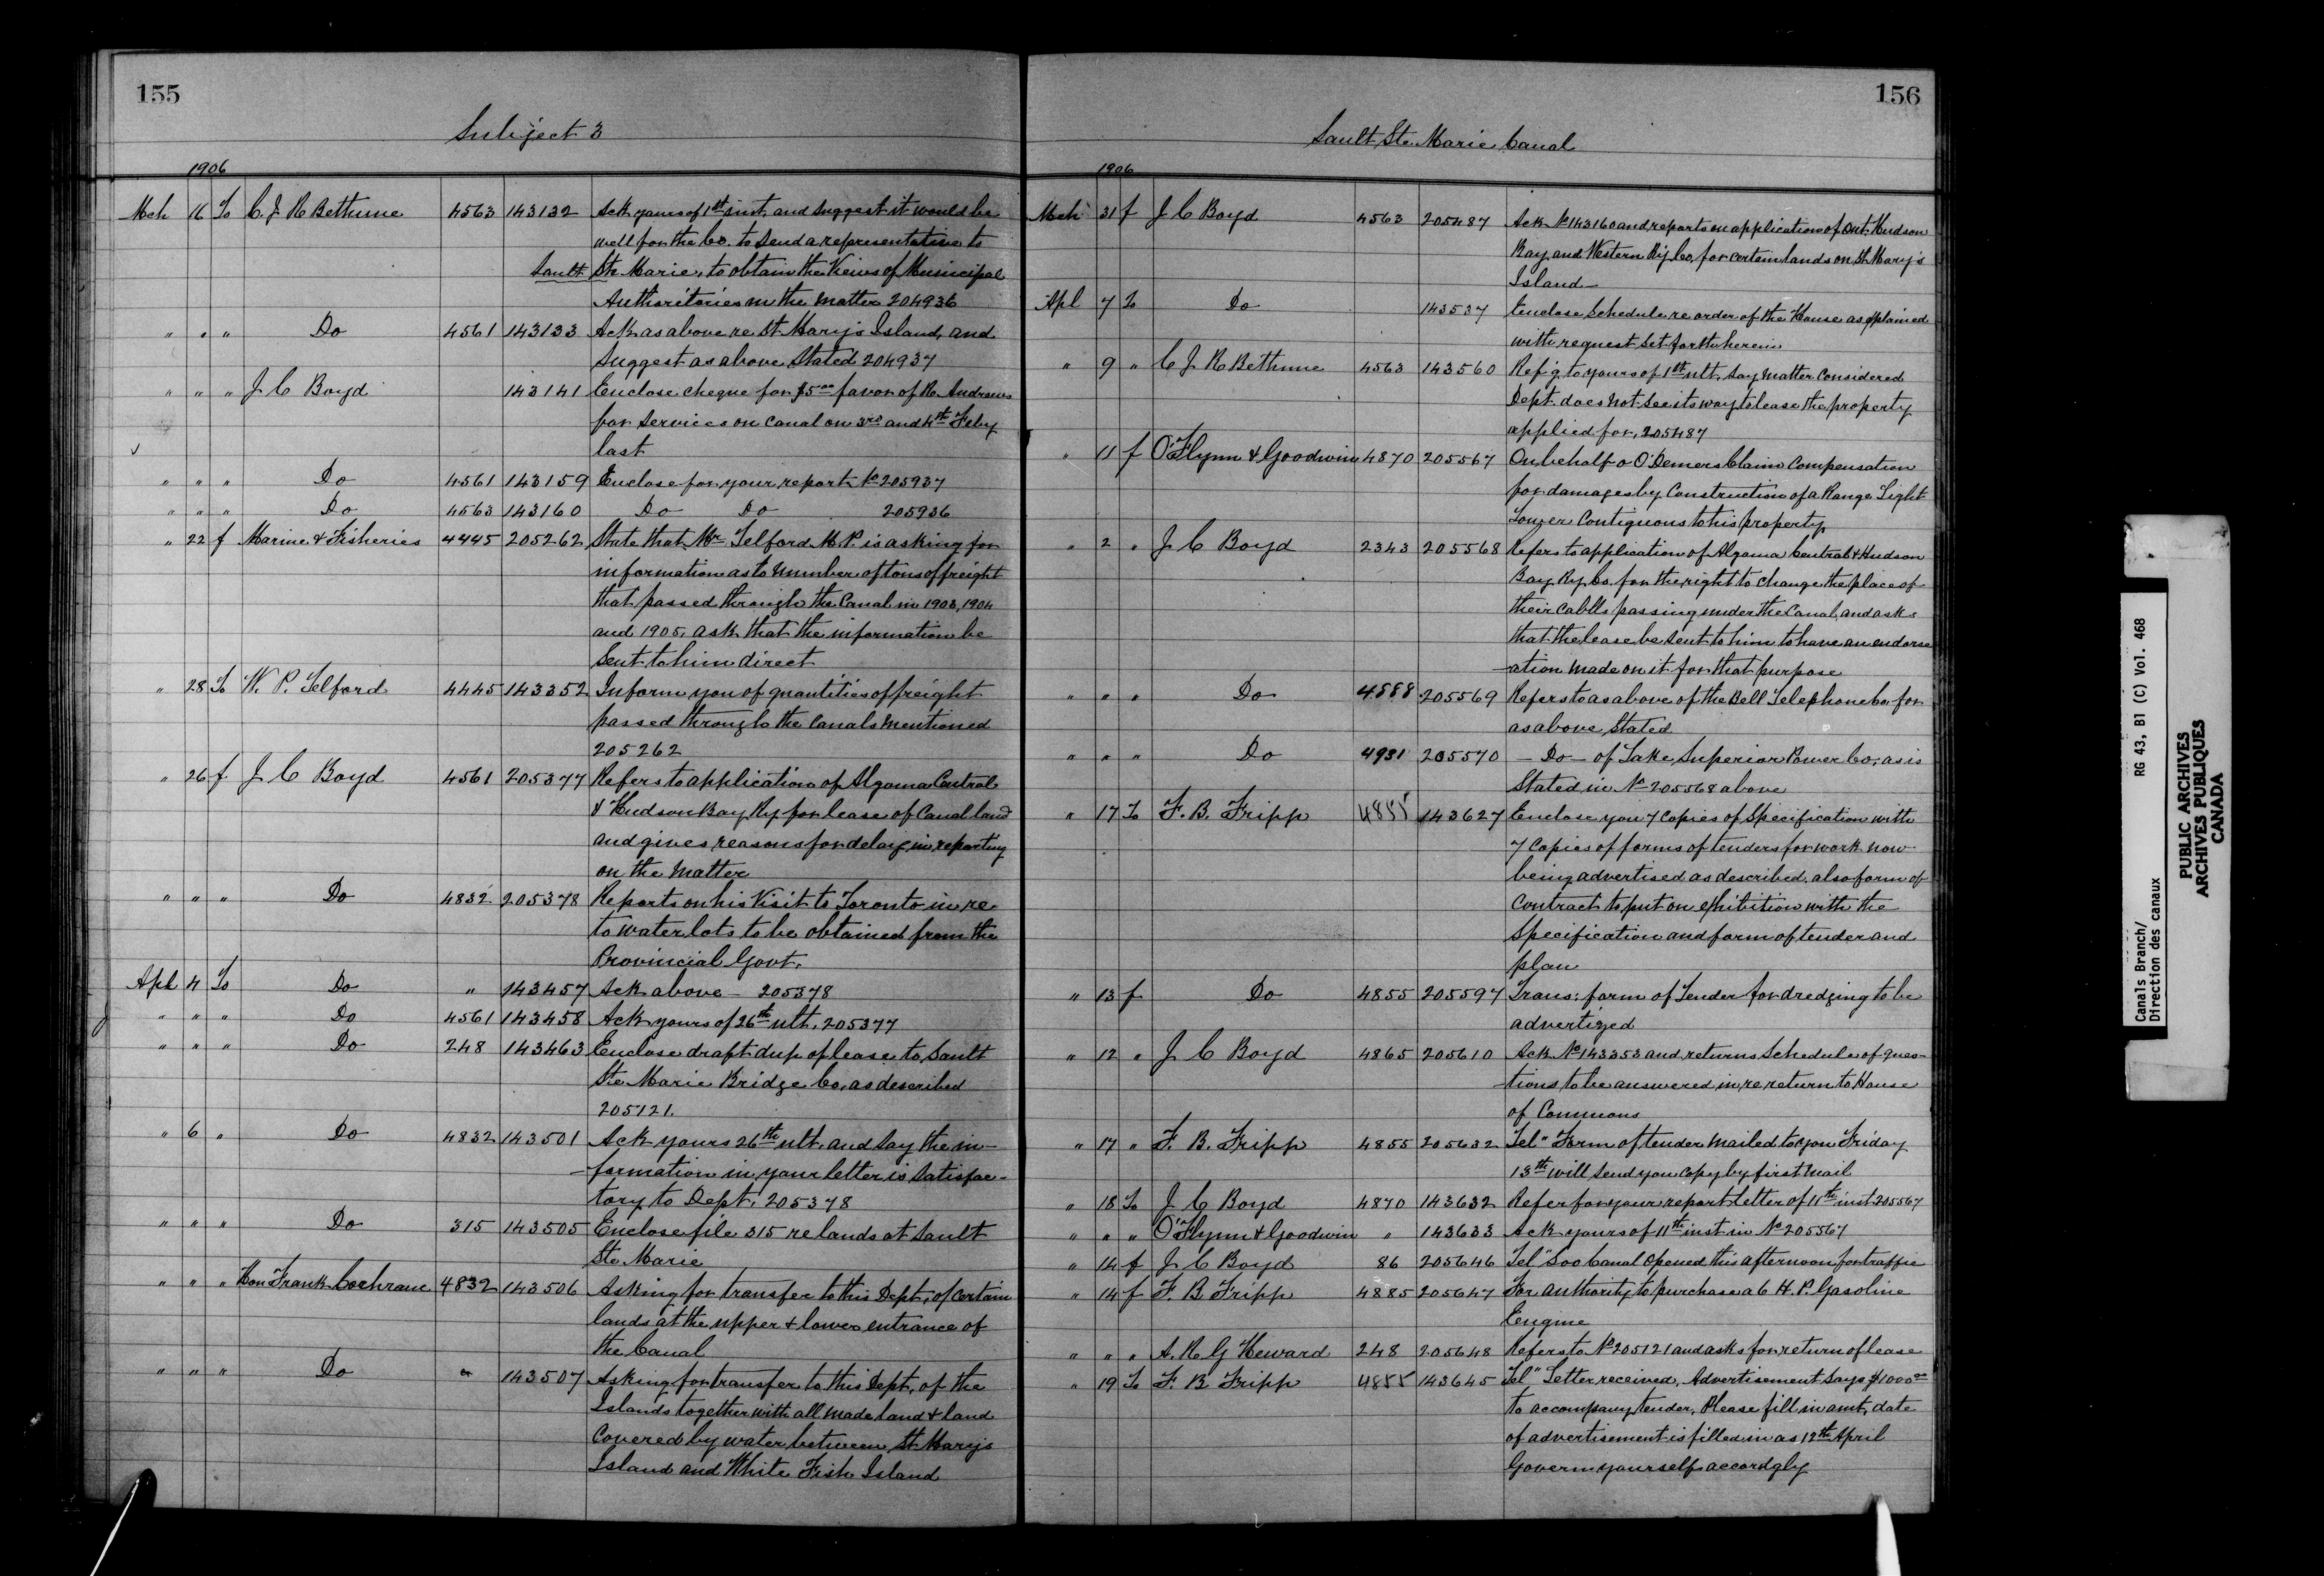 155
Subject 3
1906
Mch 16 To C. J. R Bethune 4563 143132 Ack yours of 1st inst, and suggest it would be
well for the Co. to send a representative to
Sault Ste Marie, to obtain the Views of Municipal
Authoritories in the matter 204936
" " " Do 4561 143133 Ack as above re St. Mary's Island, and
suggest as above Stated 204937
" " " J C Boyd 143141 Enclose cheque for $5.00 favor of R. Andrews
for services on canal on 3rd and 4th Feby
last
" " " Do 4561 143159 Enclose for your report No 205937
" " " Do 4563 143160 Do Do 205936
" 22 f Marine & Fisheries 4445 205262 State that Mr Telford M.P. is asking for
information as to number of tons of freight
that passed through the Canal in 1903, 1904
and 1905, ask that the information be
sent to him direct
" 28 To W. P. Telford 4445 143352 Inform you of quantities of freight
passed through the Canals mentioned
205262
" 26 f J C Boyd 4561 205377 Refers to application of Algoma Central
& Hudson Bay Ry for lease of Canal land
and gives reasons for delay in reporting
on the matter
" " " Do 4832 205378 Reports on his Visit to Toronto in re
to water lots to be obtained from the
Provincial Govt.
Apl 4 To Do " 143457 Ack above - 205378
" " " Do 4561 143458 Ack yours of 26th ult, 205377
" " " Do 248 143463 Enclose draft dup of lease to Sault
Ste Marie Bridge Co, as described
205121.
" 6 " Do 4832 143501 Ack yours 26th ult. and say the in-
-formation in your letter is satisfac-
tory to Dept. 205378
" " " Do 315 143505 Enclose file 315 re lands at Sault
Ste Marie
" " " Hon Frank Cochrane 4832 143506 Asking for transfer to this Dept, of certain
lands at the upper & lower entrance of
the Canal
" " " Do " 143507 Asking for transfer to this Dept, of the
Islands together with all made land & land
Covered by water between St. Marys
Island and White Fish Island
156
Sault Ste. Marie Canal
1906
Mch 31 f J C Boyd 4563 205487 Ack No 143160 and reports on application of Ont. Hudson
Bay and Western Ry Co, for certain lands on St. Mary's
Island -
Apl 7 To Do 143537 Enclose Schedule re order of the House as explained
with request set forth herein
" 9 " C J R Bethune 4563 143560 Ref'g to yours of 1st ult. say matter considered
Dept. does not see its way to lease the property
applied for, 205487
" 11 f O'Flynn & Goodwin 4870 205567 On behalf o O. Demers Claim compensation
for damages by Construction of a Range Light
Tower contiguous to his property
" 2 " J C Boyd 2343 205568 Refers to application of Algoma Central & Hudson
Bay Ry Co. for the right to change the place of
their cables passing under the Canal, and asks
that the lease be sent to him to have an endorse
-ation made on it for that purpose
" " " Do 4588 205569 Refers to as above of the Bell Telephone Co for
as above stated
" " " Do 4931 205570 - Do - of Lake Superior Power Co; as is
Stated in No 205568 above
" 17 To F. B. Fripp 4855 143627 Enclose you 7 copies of Specification with
7 copies of forms of tenders for work now
being advertised as described. also form of
Contract to put on exhibition with the
Specification and form of tender and
plan
" 13 f Do 4855 205597 Trans: form of Tender for dredging to be
advertized
" 12 " J C Boyd 4865 205610 Ack No 143353 and returns Schedule of ques-
-tions to be answered in re return to House
of Commons
" 17 " F. B. Fripp 4855 205632 Tel" Form of tender mailed to you Friday
13th will send you copy by first mail
" 18 To J C Boyd 4870 143632 Refer for your report letter of 11th inst 205567
" " " O'Flynn & Goodwin " 143633 Ack yours of 11th inst in No 205567
" 14 f J C Boyd 86 205646 Tel" Soo Canal opened this afternoon for traffic
" 14 f F. B Fripp 4885 205647 For authority to purchase a 6 H. P. Gasoline
Engine
" " " A. R G Heward 248 205648 Refers to No 205121 and asks for return of lease
" 19 To F. B Fripp 4855 143645 Tel" Letter received, Advertisement says $1000.00
to accompany tender, Please fill in amt, date
of advertisement is filled in as 12th April
Govern yourself accordgly
Canals Branch/
Direction des canaux
RG 43, B1 (C) Vol. 468
PUBLIC ARCHIVES
ARCHIVES PUBLIQUES
CANADA